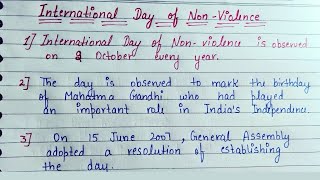 International Day of Non-Violence
1] International Day of Non-violence is observed
on 2 October every year.
2] The day is observed to mark the birthday
of Mahatma Gandhi who had played
an important role in India's Independence.
3] On 15 June 2007, General Assembly
adopted a resolution of establishing
the day.